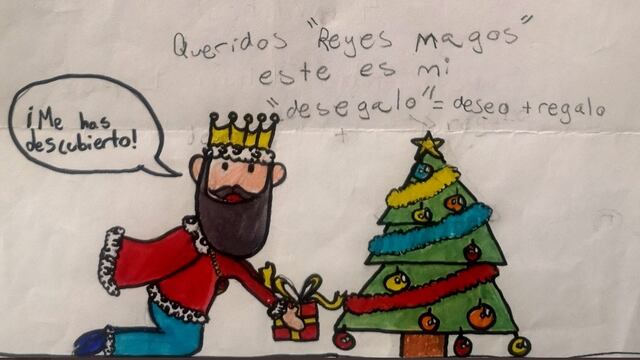 Queridos "Reyes magos"
este es mi
"desegalo" = deseo + regalo
¡Me has
descubierto!